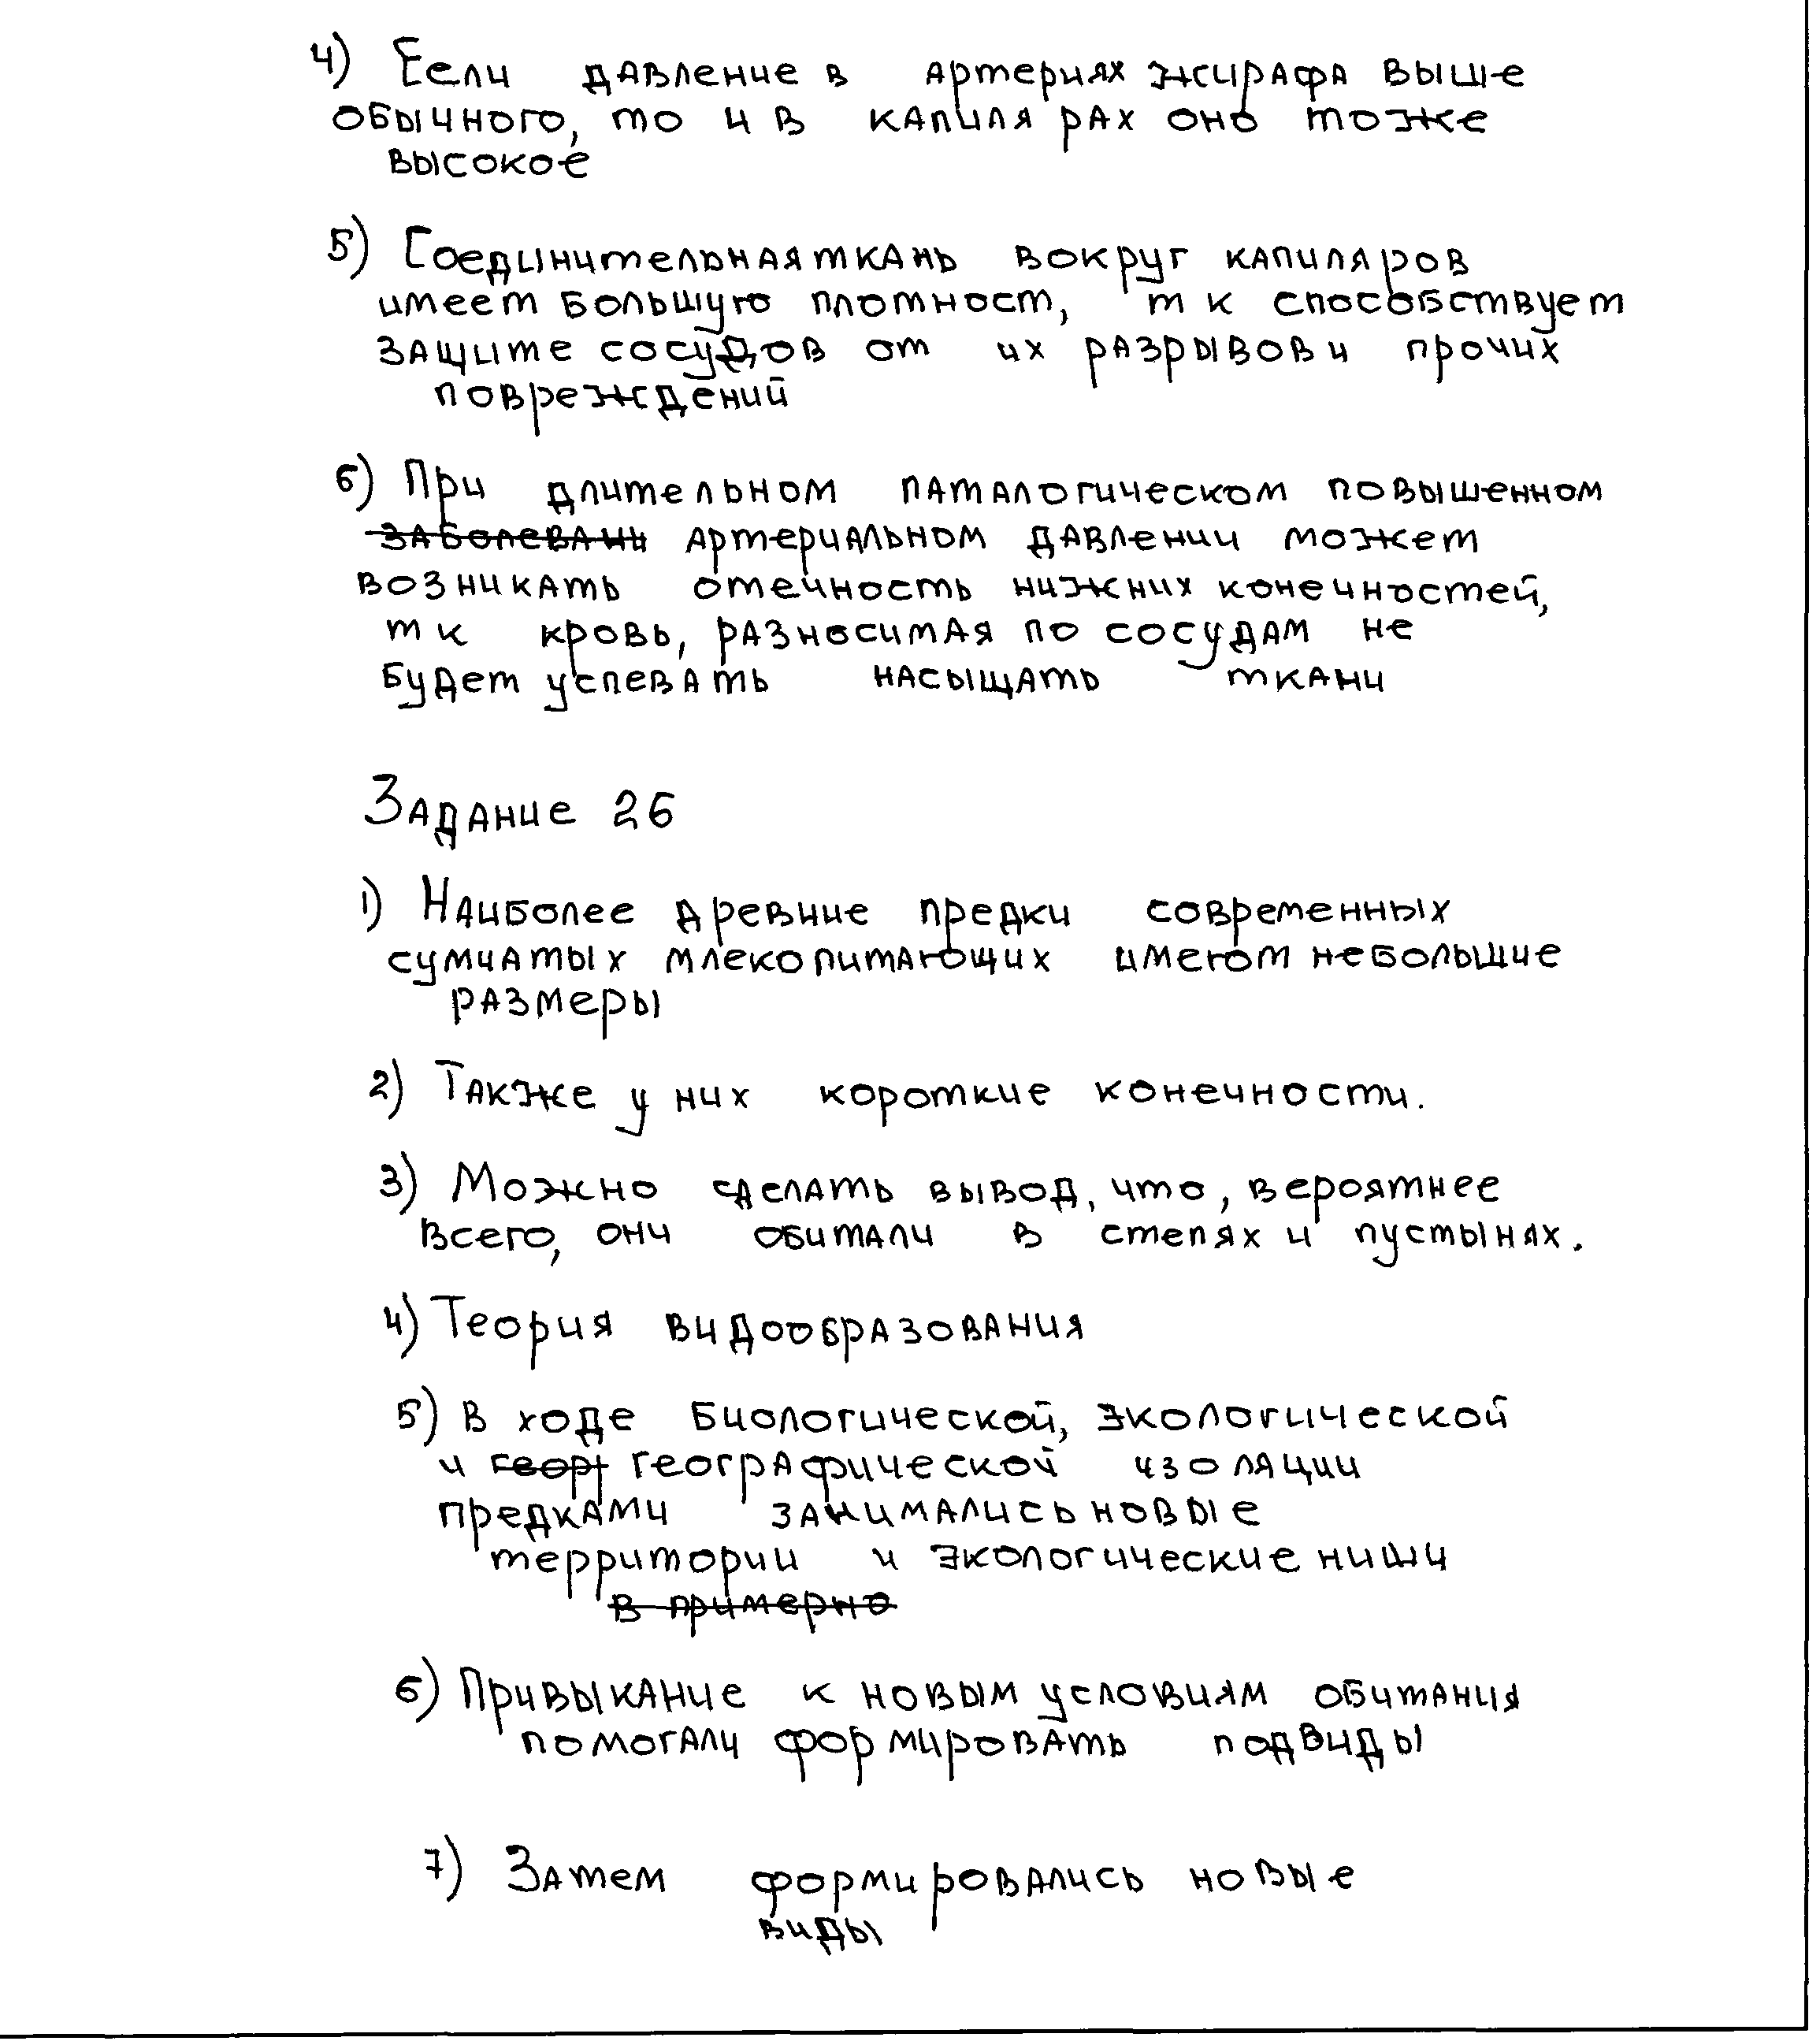 4) Если давление в артериях жирафа выше
обычного, то и в капилярах оно тоже
высокое
5) Соединительная ткань вокруг капиляров
имеет большую плотност, т к способствует
защите сосудов от их разрывов и прочих
повреждений
6) При длительном паталогическом повышенном
заболевани артериальном давлении может
возникать отечность нижних конечностей,
т к кровь, разносимая по сосудам не
будет успевать насыщать ткани
Задание 26
1) Наиболее древние предки современных
сумчатых млекопитающих имеют небольшие
размеры
2) Также у них короткие конечности.
3) Можно сделать вывод, что, вероятнее
всего, они обитали в степях и пустынях.
4) Теория видообразования
5) В ходе биологической, экологической
и геогр географической изоляции
предками занимались новые
территории и экологические ниши
в примерно
6) Привыкание к новым условиям обитания
помогали формировать подвиды
7) Затем формировались новые
виды